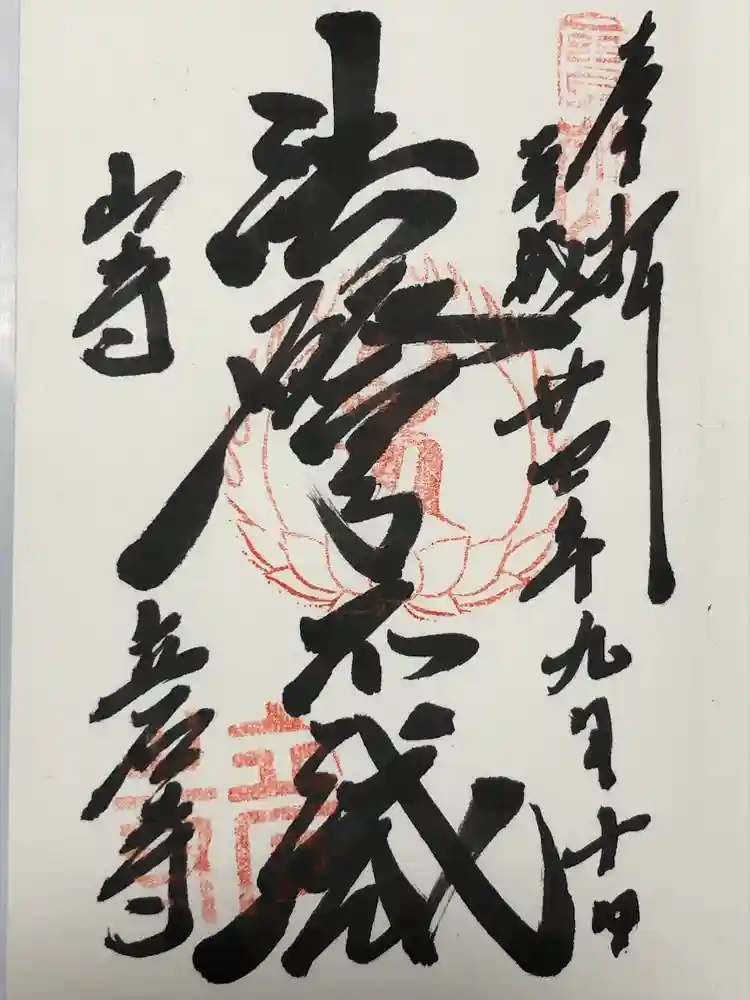 奉拝
平成廿四年九月十日
法燈不滅
山寺
立石寺